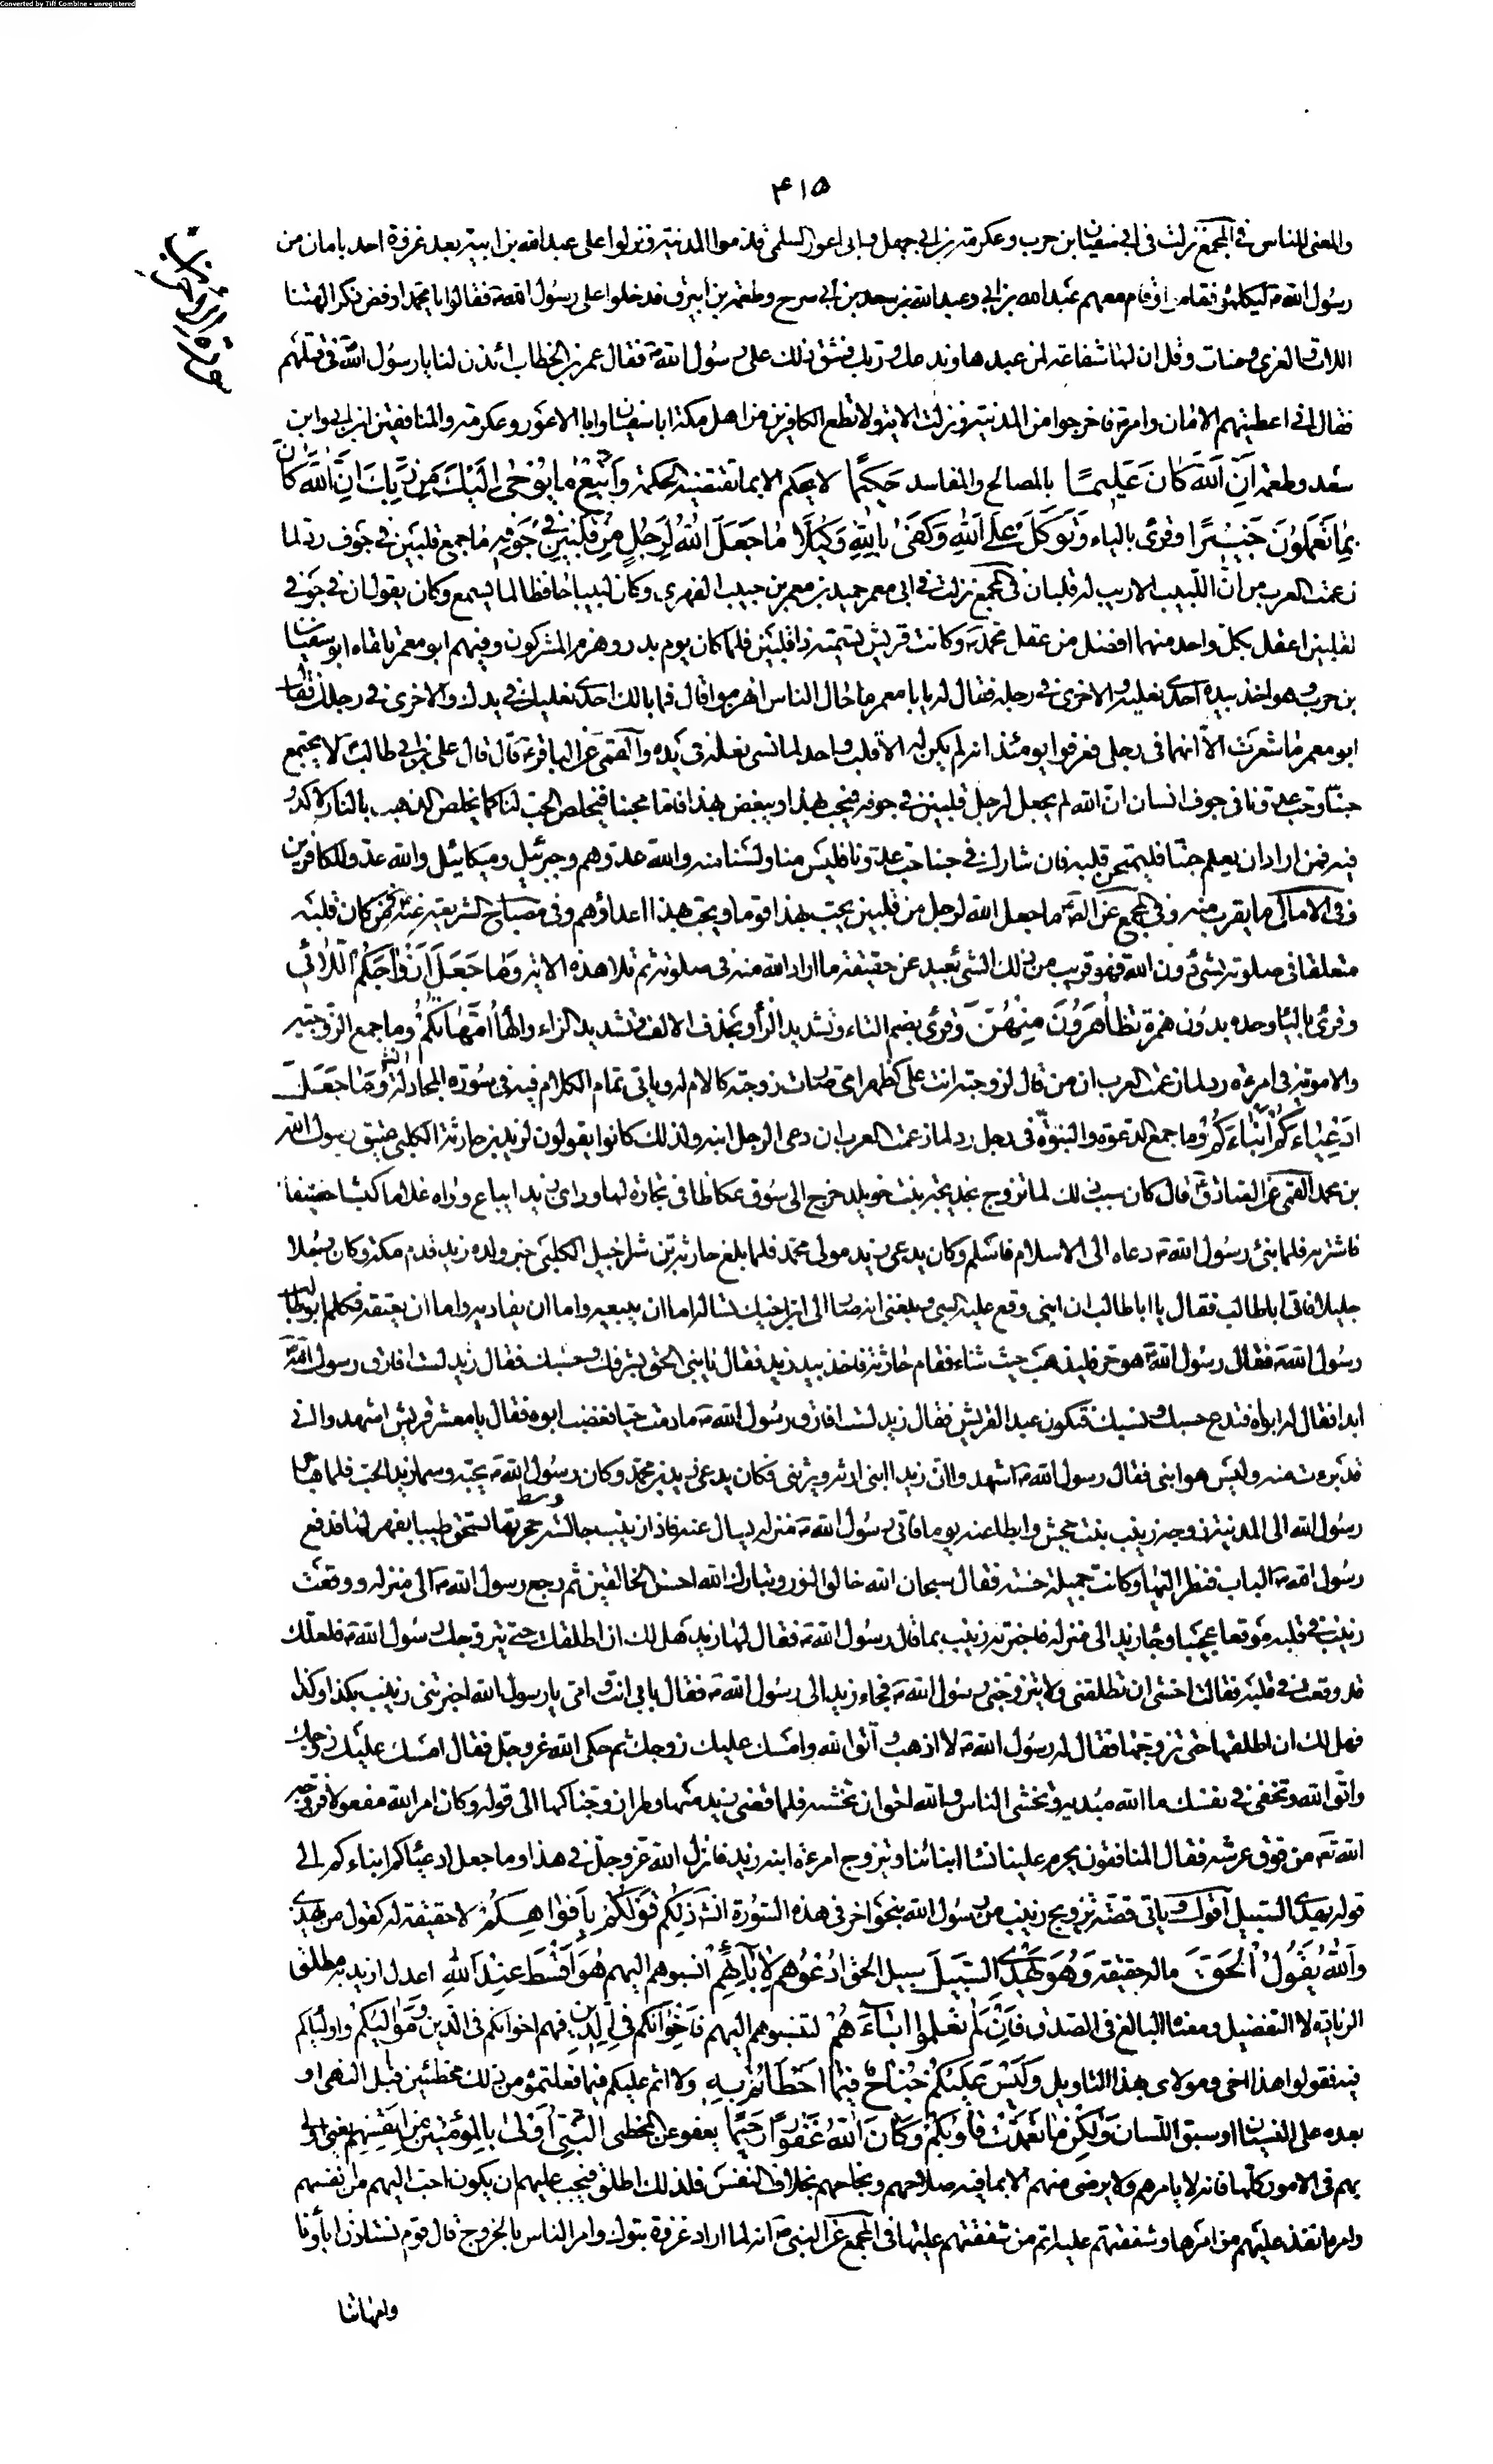 Converted by Tiff Combine - unregistered
۴۱۵
سورة الاحزاب
والمعنى للناس في المجمع نزلت في ابي سفيان ابن حرب وعكرمة بن ابي جهل وابي اعور السلمي قدموا المدينة ونزلوا على عبد الله بن ابي بعد غزوة احد بامان من
رسول الله ص ليكلموه فقاموا وقام معهم عبد الله بن ابي وعبد الله بن سعد بن ابي سرح وطعمة بن ابيرق فدخلوا على رسول الله ص فقالوا يا محمد ارفض ذكر الهتنا
اللات والعزى ومنات وقل ان لها شفاعة لمن عبدها وندعك وربك فشق ذلك على رسول الله ص فقال عمر بن الخطاب ائذن لنا يا رسول الله في قتلهم
فقال اني اعطيتهم الامان وامر ص فاخرجوا من المدينة ونزلت الاية ولا تطع الكافرين من اهل مكة ابا سفيان وابا الاعور وعكرمة والمنافقين ابن ابي وابن
سعد وطعمة ان الله كان عليما بالمصالح والمفاسد حكيما لا يحكم الا بما تقتضيه الحكمة واتبع ما يوحى اليك من ربك ان الله كان
بما تعملون خبيرا وقرئ بالياء وتوكل على الله وكفى بالله وكيلا ما جعل الله لرجل من قلبين في جوفه ما جمع قلبين في جوف رد لما
زعمت العرب من ان اللبيب الاريب له قلبان في المجمع نزلت في ابي معمر حميد بن معمر بن حبيب الفهري وكان لبيبا حافظا لما يسمع وكان يقول ان في جوفي
لقلبين اعقل بكل واحد منهما افضل من عقل محمد ص وكانت قريش تسميه ذا قلبين فلما كان يوم بدر وهزم المشركون وفيهم ابو معمر تلقاه ابو سفيان
بن حرب وهو اخذ بيده احدى نعليه والاخرى في رجله فقال له يا با معمر ما حال الناس انهزموا قال فما بالك احدى نعليك في يدك والاخرى في رجلك فقال
ابو معمر ما شعرت الا انهما في رجلي فعرفوا يومئذ انه لم يكن له الا قلب واحد لما نسي نعله في يده والقمي عن الباقر ع قال قال علي بن ابي طالب لا يجتمع
حبنا وحب عدونا في جوف انسان ان الله لم يجعل لرجل قلبين في جوفه فيحب بهذا ويبغض بهذا فاما محبنا فيخلص الحب لنا كما يخلص الذهب بالنار لا كدر
فيه فمن اراد ان يعلم حبنا فليمتحن قلبه فان شارك في حبنا حب عدونا فليس منا ولسنا منه والله عدوهم وجبرئيل وميكائيل والله عدو للكافرين
وفي الامالي ما يقرب منه وفي المجمع عن الص ما جعل الله لرجل من قلبين يحب بهذا قوما ويحب بهذا اعداؤهم وفي مصباح الشريعة عنه فمن كان قلبه
متعلقا في صلوته بشئ دون الله فهو قريب من ذلك الشئ بعيد عن حقيقة ما اراد الله منه في صلوته ثم تلا هذه الاية وما جعل ازواجكم اللائي
وقرئ بالياء وحده بدون همزة تظاهرون منهن وقرئ بضم التاء وتشديد الراء وبحذف الالف وتشديد الزاء والهاء امهاتكم وما جمع الزوجية
والامومة في امرءة رد لما زعمت العرب ان من قال لزوجته انت علي كظهر امي صارت زوجته كالام له وياتي تمام الكلام فيه في سورة المجادلة انش وما جعل
ادعياءكم ابناءكم وما جمع الدعوة والبنوة في رجل رد لما زعمت العرب ان دعي الرجل ابنه ولذلك كانوا يقولون لزيد بن حارثة الكلبي عتيق رسول الله
بن محمد القمي عن الصادق ع قال كان سبب ذلك لما تزوج بخديجة بنت خويلد خرج الى سوق عكاظ في تجارة لها وراى زيدا يباع وراه غلاما كيسا حصيفا
فاشتريه فلما بنئ رسول الله ص دعاه الى الاسلام فاسلم وكان يدعى زيد مولى محمد فلما بلغ حارثة بن شراحيل الكلبي خبر ولده زيد قدم مكة وكان رجلا
جليلا فاتى ابا طالب فقال يا ابا طالب ان ابني وقع عليه السبي وبلغني انه صار الى ابن اخيك تساله اما ان يبيعه واما ان يفاديه واما ان يعتقه فكلم ابو طالب
رسول الله ص فقال رسول الله ص هو حر فليذهب حيث شاء فقام حارثة فاخذ بيد زيد فقال يا بني الحق بشرفك وحسبك فقال زيد لست افارق رسول الله
ابدا فقال له ابواه فتدع حسبك ونسبك وتكون عبدا لقريش فقال زيد لست افارق رسول الله ص ما دمت حيا فغضب ابوه فقال يا معشر قريش اشهدوا اني
قد برءت منه وليس هو ابني فقال رسول الله ص اشهدوا ان زيدا ابني ارثه ويرثني وكان يدعى زيد بن محمد وكان رسول الله ص يحبه وسماه زيد الحب فلما هاجر
رسول الله الى المدينة زوجه زينب بنت جحش وابطا عنه يوما فاتى رسول الله ص منزله يسال عنه فاذا زينب جالسة وسط حجرتها تسحق طيبا بفهر لها فدفع
رسول الله ص الباب فنظر اليها وكانت جميلة حسنة فقال سبحان الله خالق النور وتبارك الله احسن الخالقين ثم رجع رسول الله ص الى منزله ووقعت
زينب في قلبه موقعا عجيبا وجاء زيد الى منزله فاخبرته زينب بما قال رسول الله ص فقال لها زيد هل لك ان اطلقك حتى يتزوجك رسول الله ص فلعلك
قد وقعت في قلبه فقالت اخشى ان تطلقني ولا يتزوجني رسول الله ص فجاء زيد الى رسول الله ص فقال بابي انت وامي يا رسول الله اخبرتني زينب بكذا وكذا
فهل لك ان اطلقها حتى تزوجها فقال له رسول الله ص لا اذهب واتق الله وامسك عليك زوجك ثم حكى الله عز وجل فقال امسك عليك زوجك
واتق الله وتخفي في نفسك ما الله مبديه وتخشى الناس والله احق ان تخشيه فلما قضى زيد منها وطرا زوجناكها الى قوله وكان امر الله مفعولا فزوجه
الله تع من فوق عرشه فقال المنافقون يحرم علينا نساء ابنائنا ويتزوج امرءة ابنه زيد فانزل الله عز وجل في هذا وما جعل ادعياكم ابناءكم الى
قوله يهدي السبيل اقول وياتي قصة تزويج زينب من رسول الله بنحو اخر في هذه السورة انش ذلكم قولكم بافواهكم لا حقيقة له كقول من يهذي
والله يقول الحق ماله حقيقة وهو يهدي السبيل سبيل الحق ادعوهم لابائهم انسبوهم اليهم هو اقسط عند الله اعدل اريد به مطلق
الزيادة لا التفضيل ومعناه البالغ في الصدق فان لم تعلموا اباءهم لتنسبوهم اليهم فاخوانكم في الدين فهم اخوانكم في الدين ومواليكم واولياكم
فيه فقولوا هذا اخي ومولاي بهذا التاويل وليس عليكم جناح فيما اخطاتم به ولا اثم عليكم فيما فعلتموه من ذلك مخطئين قبل النهي او
بعده على النسيان او سبق اللسان ولكن ما تعمدت قلوبكم وكان الله غفورا رحيما يعفو عن المخطئ النبي اولى بالمؤمنين من انفسهم يعني اولى
بهم في الامور كلها فانه لا يامرهم ولا يرضى منهم الا بما فيه صلاحهم ونجاحهم بخلاف النفس فلذلك اطلق فيجب عليهم ان يكون احب اليهم من انفسهم
وامره انفذ عليهم من امرها وشفقتهم عليه اتم من شفقتهم عليها في المجمع عن النبي ص انه لما اراد غزوة تبوك وامر الناس بالخروج قال قوم نستاذن اباؤنا
وامهاتنا